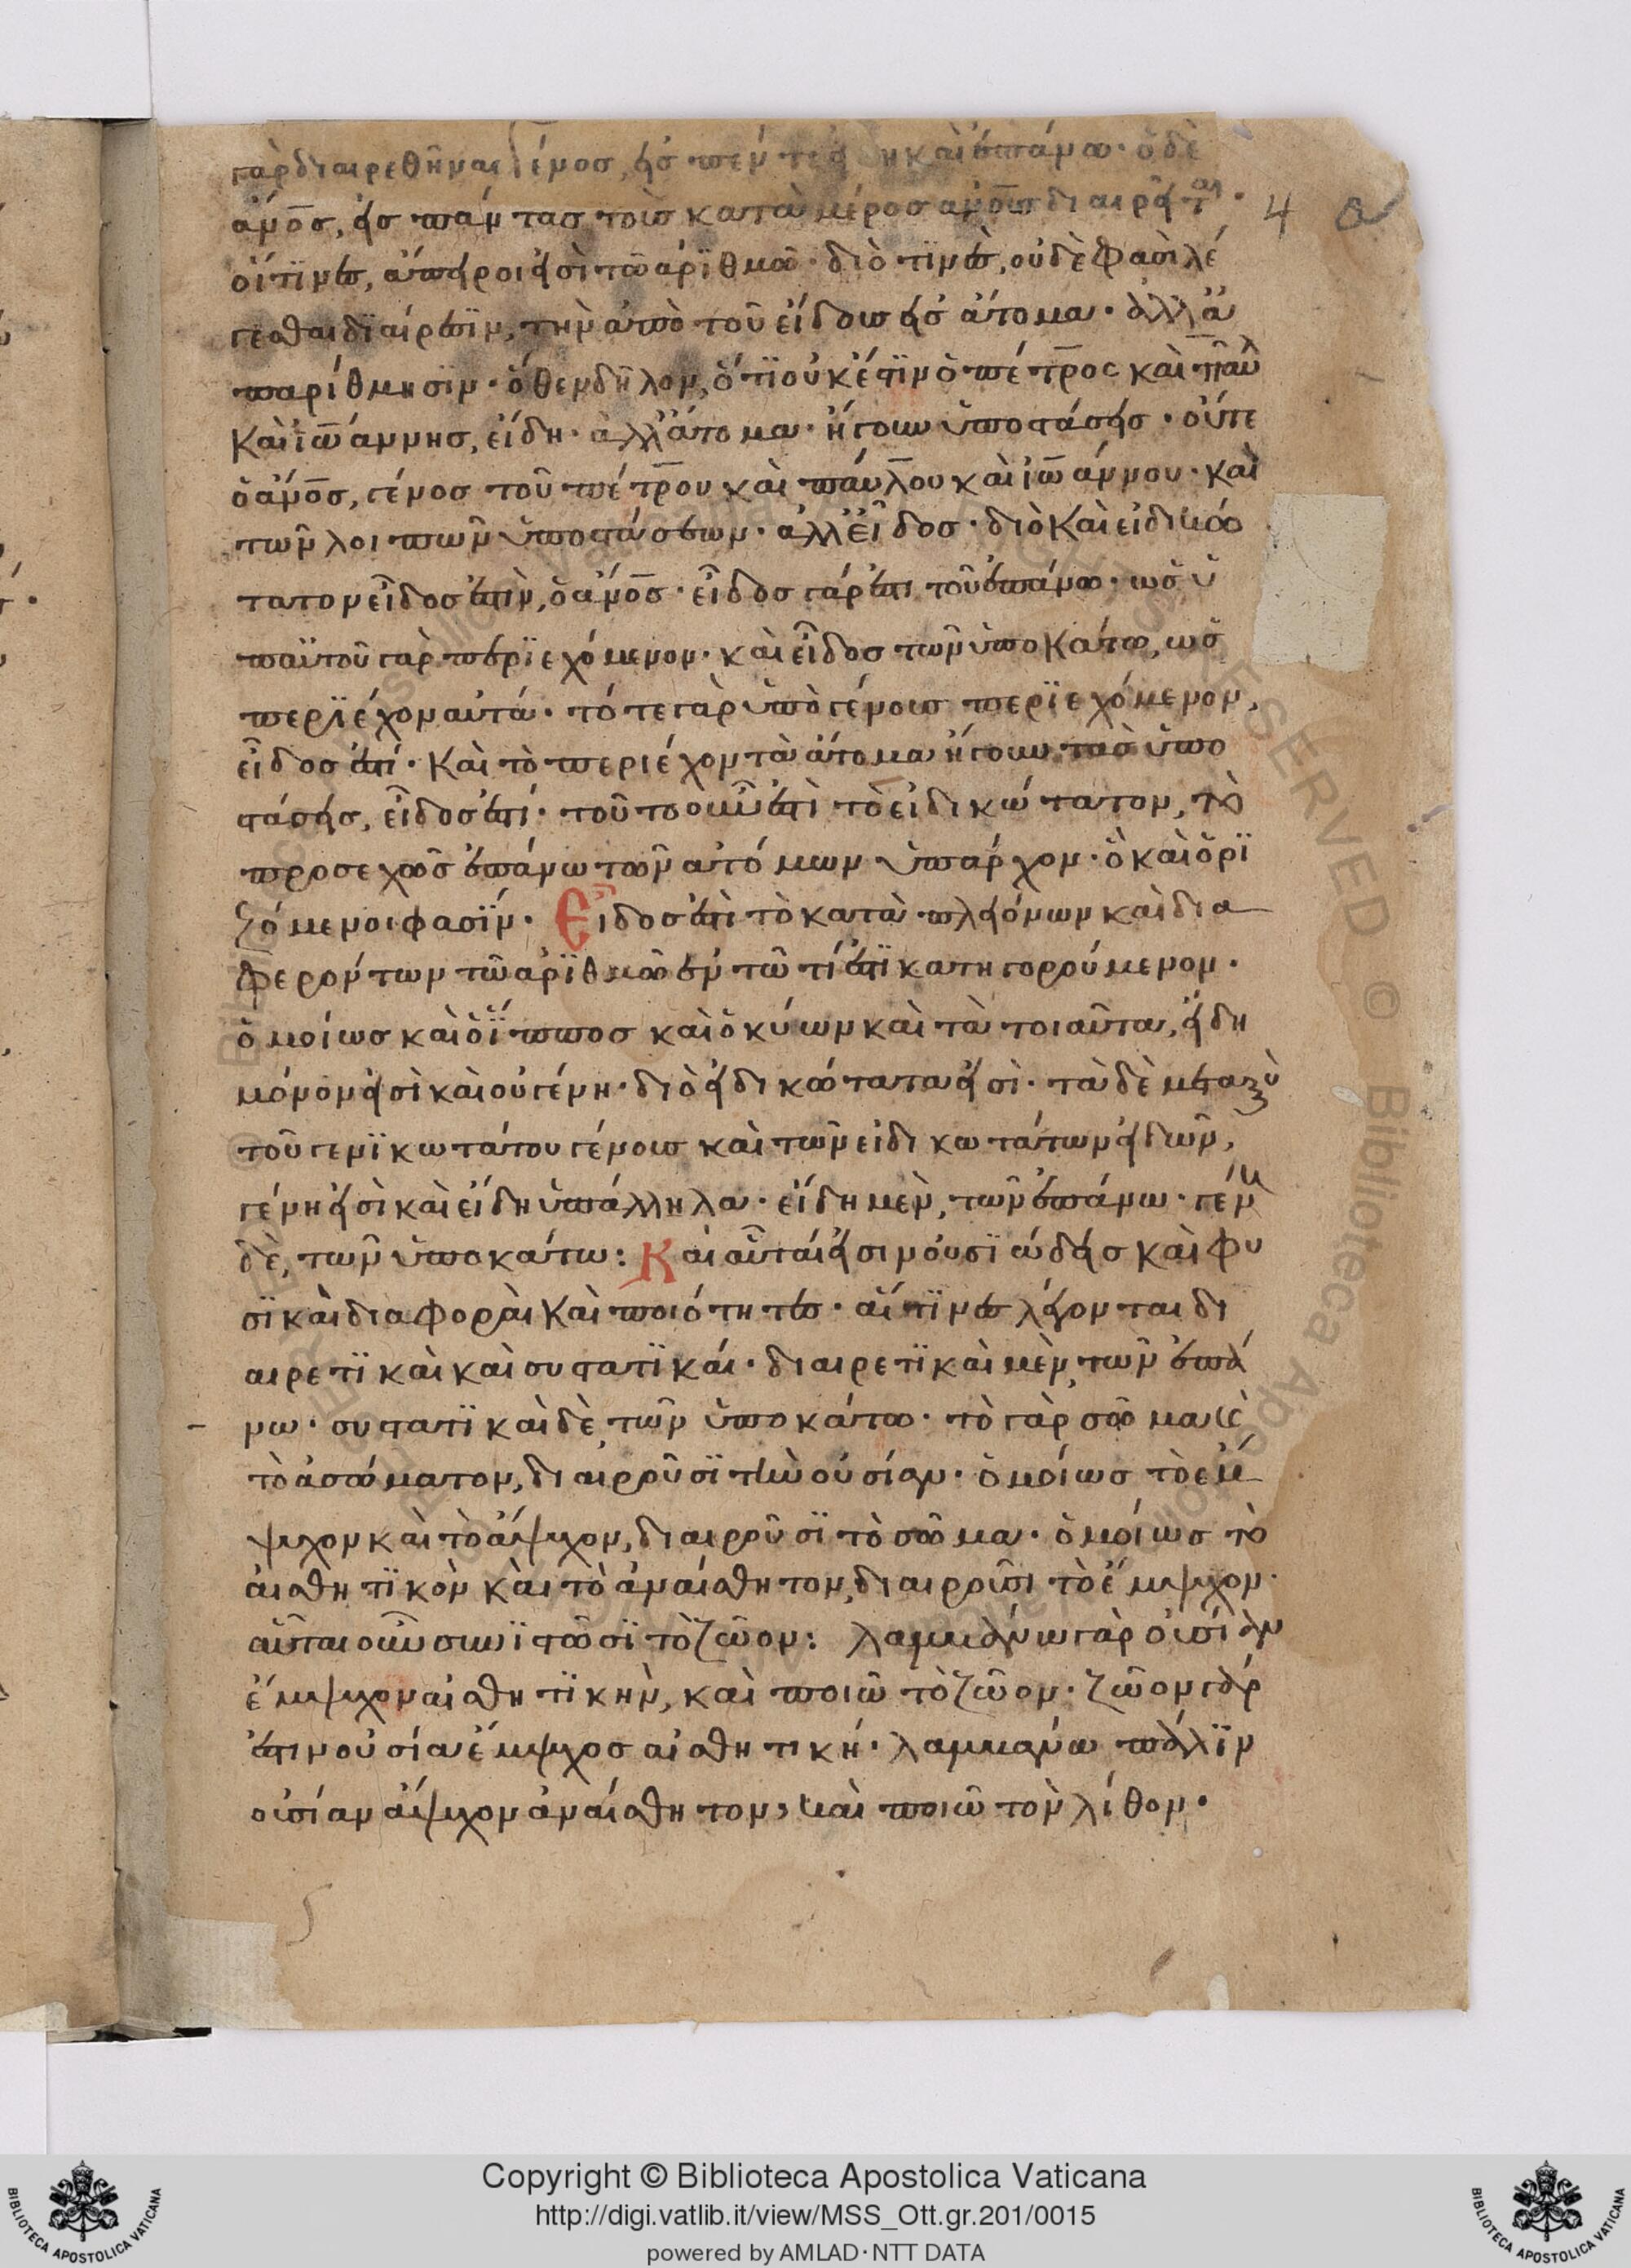 γὰρ διαιρεθῆναι γένος, εἰς πέντε ἢ καὶ ἐπάνω· ὁ δὲ
ἄνος, εἰς πάντας τοὺς κατὰ μέρος ανους διαιρεῖται·
οἵτϊνες, ἄπειροι εἰσὶ τῶ ἀρϊθμῶ· διό τϊνες, οὐδὲ φασὶ λέ
γεσθαι διαίρεσϊν, τὴν ἀπὸ τοῦ εἴδους εἰς ἄτομα· ἀλλὰ
παρίθμησϊν· ὅθεν δῆλον, ὅτϊ οὐκ ἔστϊν ὁ πέτρος καὶ παῦλ
καὶ ἰωάννης, εἴδη· ἀλλἄτομα· ἤγουν ὑποστάσεις· οὔτε
ὁ ἄνος, γένος τοῦ πέτρου καὶ παύλου καὶ ἰωάννου· καὶ
τῶν λοιπῶν ὑποστάσεων· ἀλλεῖδος· διὸ καὶ εἰδικώ
τατον εἶδος ἐστὶν, ὁ ἄνος· εἶδος γάρ ἐστι τοῦ ἐπάνω· ὡς ὑ
παὐτοῦ γὰρ περϊεχόμενον· καὶ εἶδος τῶν ὑποκάτω, ὡς
περϊέχον αὐτά· τό τε γὰρ ὑπὸ γένους περϊεχόμενον,
εἶδος ἐστί· καὶ τὸ περιέχον τὰ ἄτομα ἤγουν τὰσ ὑπο
στάσεις, εἶδος ἐστί· τοῦτο οὖν ἐστὶ τὸ εἰδικώτατον, τὸ
προσεχῶς ἐπάνω τῶν ἀτόμων ὑπάρχον· ὃ καὶ ὁρϊ
ζόμενοι φασϊν· Εἶδος ἐστὶ τὸ κατὰ πλειόνων καὶ δια
φερόντων τῶ ἀρϊθμῶ ἐν τῶ τί ἐστϊ κατηγορούμενον·
ὁμοίως καὶ ὁ ἵππος καὶ ὁ κύων καὶ τὰ τοιαῦτα, εἴδη
μόνον εἰσὶ καὶ οὐ γένη· διὸ εἰδικώτατα εἰσὶ· τὰ δὲ μεταξὺ
τοῦ γενϊκωτάτου γένους καὶ τῶν εἰδικωτάτων εἰδῶν,
γένη εἰσὶ καὶ εἴδη ὑπάλληλα· εἴδη μὲν, τῶν ἐπάνω· γέν
δὲ, τῶν ὑποκάτω: Καὶ αὗται εἰσιν οὐσϊώδεις καὶ φυ
σϊκαὶ διαφοραὶ καὶ ποιότητες· αἵτϊνες λέγονται δι
αιρετϊκαὶ καὶ συστατϊκάι· διαιρετϊκαὶ μὲν, τῶν ἐπά
νω· συστατϊκαὶ δὲ τῶν ὑποκάτω· τὸ γὰρ σῶμα καὶ
τὸ ἀσώματον, διαιροῦσϊ τὴν οὐσίαν· ὁμοίως τὸ ἔμ
ψυχον καὶ τὸ ἄψυχον, διαιροῦσϊ τὸ σῶμα· ὁμοίως τὸ
ἀισθητϊκὸν καὶ τὸ ἀναίσθητον, διαιροῦσι τὸ ἔμψυχον·
αὗται οὖν συνϊστῶσϊ τὸ ζῶον: λαμβάνω γὰρ οὐσίαν
ἔμψυχον αἰσθητϊκὴν, καὶ ποιῶ τὸ ζῶον· ζῶον γάρ
ἐστιν οὐσία ἔμψυχος αἰσθητική· λαμβάνω πάλϊν
οὐσίαν ἄψυχον ἀναίσθητον, καὶ ποιῶ τὸν λίθον·
4
Copyright © Biblioteca Apostolica Vaticana
http://digi.vatlib.it/view/MSS_Ott.gr.201/0015
powered by AMLAD·NTT DATA
BIBLIOTECA APOSTOLICA VATICANA
BIBLIOTECA APOSTOLICA VATICANA